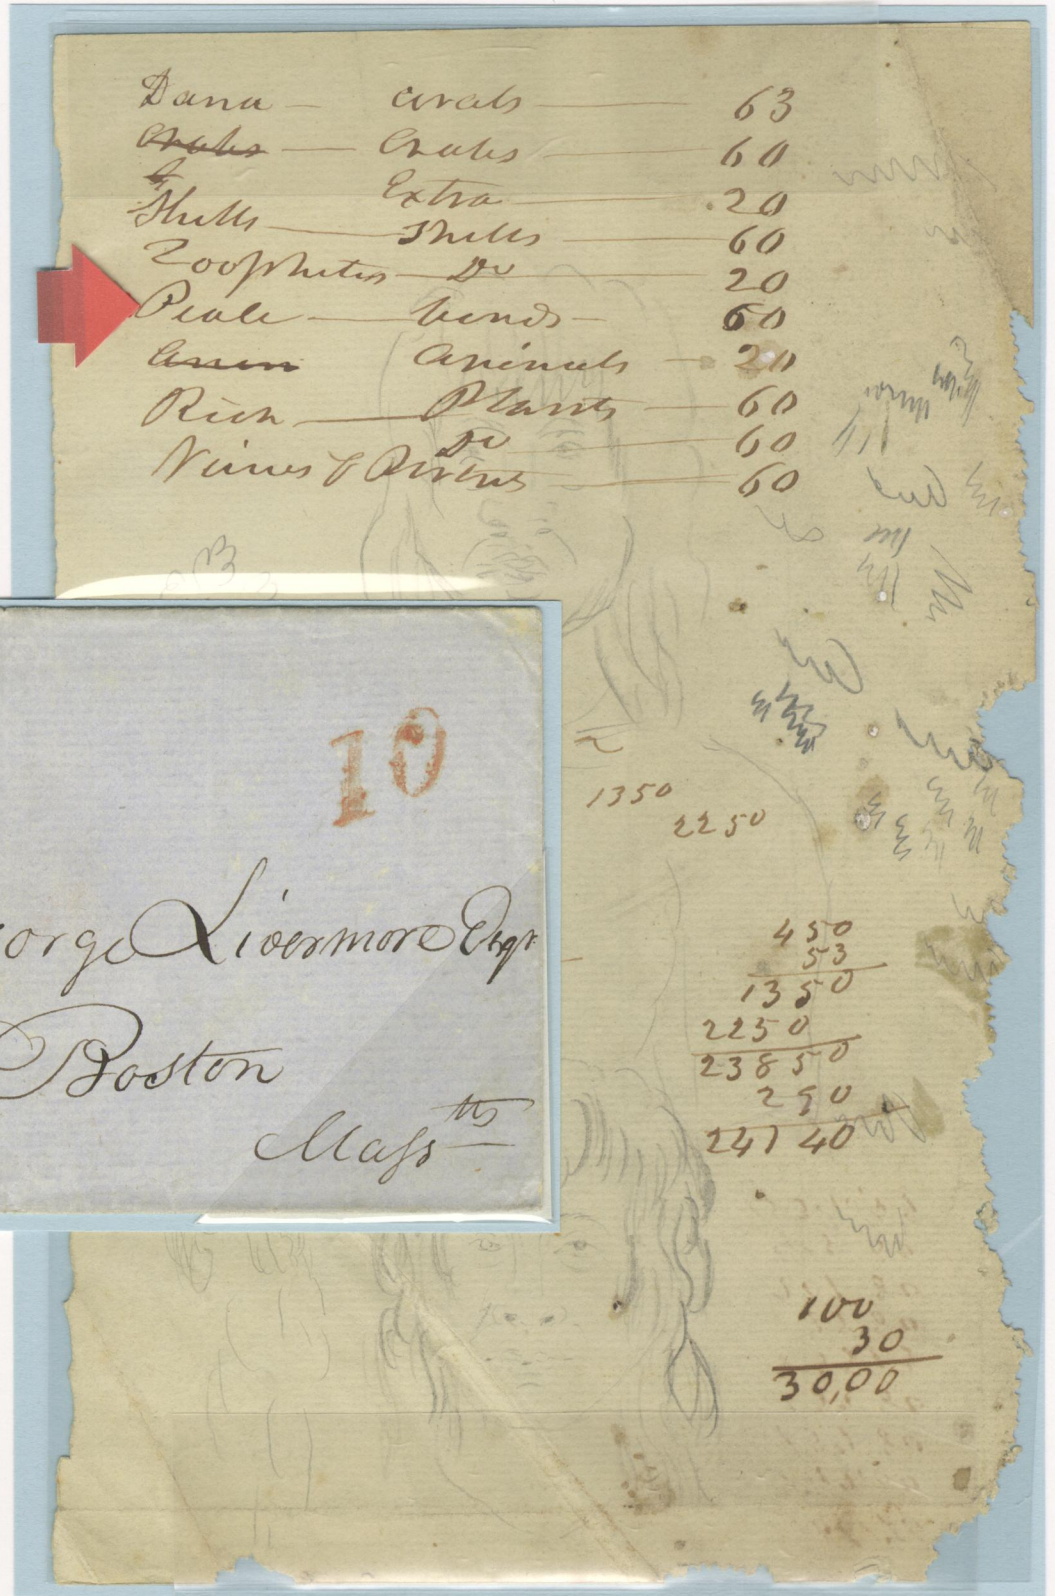 Dana — Corals — 63
Crabs — Crabs — 60
& Extra — 20
Shells — Shells — 60
Zoophites — Do — 20
Peale — birds — 60
Anim Animals — 20
Rich — Plants — 60
Do — 60
Views & — 60
10
1350
2250
orge Livermore Esqr
Boston
Massts
450
53
1350
2250
23850
290
24140
100
30
30,00